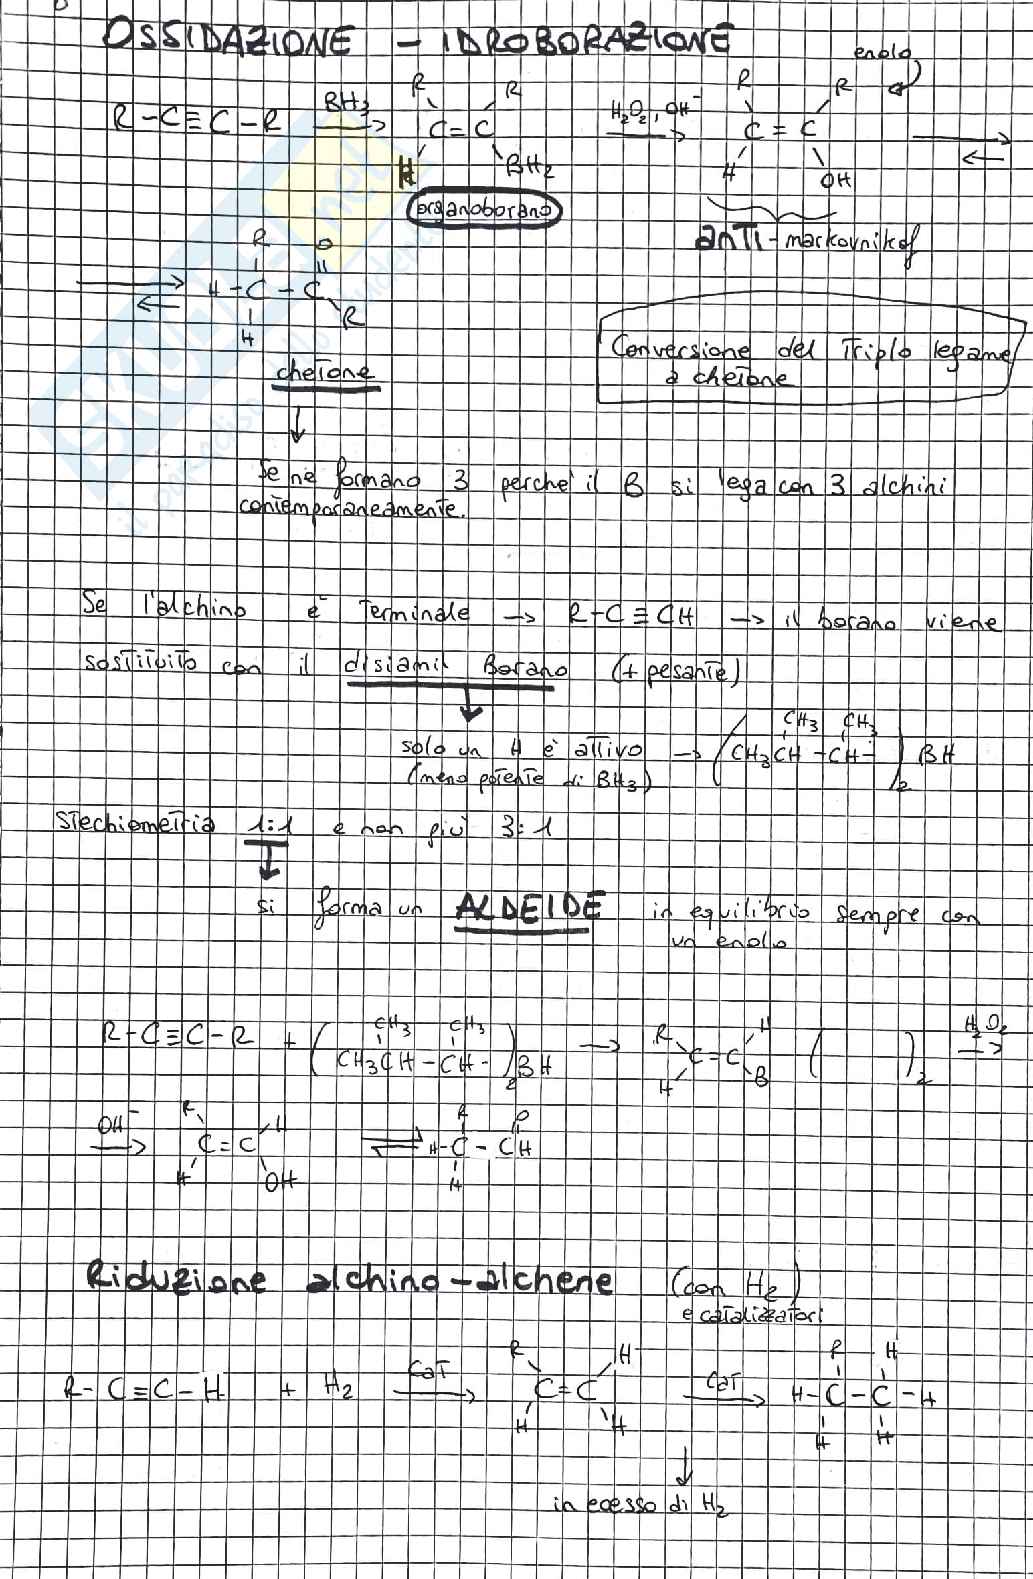 OSSIDAZIONE - IDROBORAZIONE
enolo
R-C≡C-R BH3 → R R C=C H BH2 H2O2, OH- → R R C=C H OH ⇌
organoborano
anTi-markovnikof
⇌ R O H-C-C R H
cheTone
Conversione del Triplo legame
a cheTone
↓
Se ne formano 3 perche' il B si lega con 3 alchini
contemporaneamente.
Se l'alchino è Terminale → R-C≡CH → il borano viene
sostituito con il disiamil Borano (+ pesante)
↓
solo un H è attivo → (CH3CH-CH-)2 BH CH3 CH3
(meno potente di BH3)
Stechiometria 1:1 e non più 3:1
↓
si forma un ALDEIDE in equilibrio sempre con
un enolo
R-C≡C-R + (CH3CH-CH-)2 BH CH3 CH3 → R H C=C H B ( )2 H2O2 →
OH- → R H C=C H OH ⇌ R O H-C-CH H
Riduzione alchino-alchene (con H2)
e catalizzatori
R-C≡C-H + H2 CaT → R H C=C H H CaT → R H H-C-C-H H H
↓
in ecesso di H2
SKUOLA.net
il paradiso dello studente